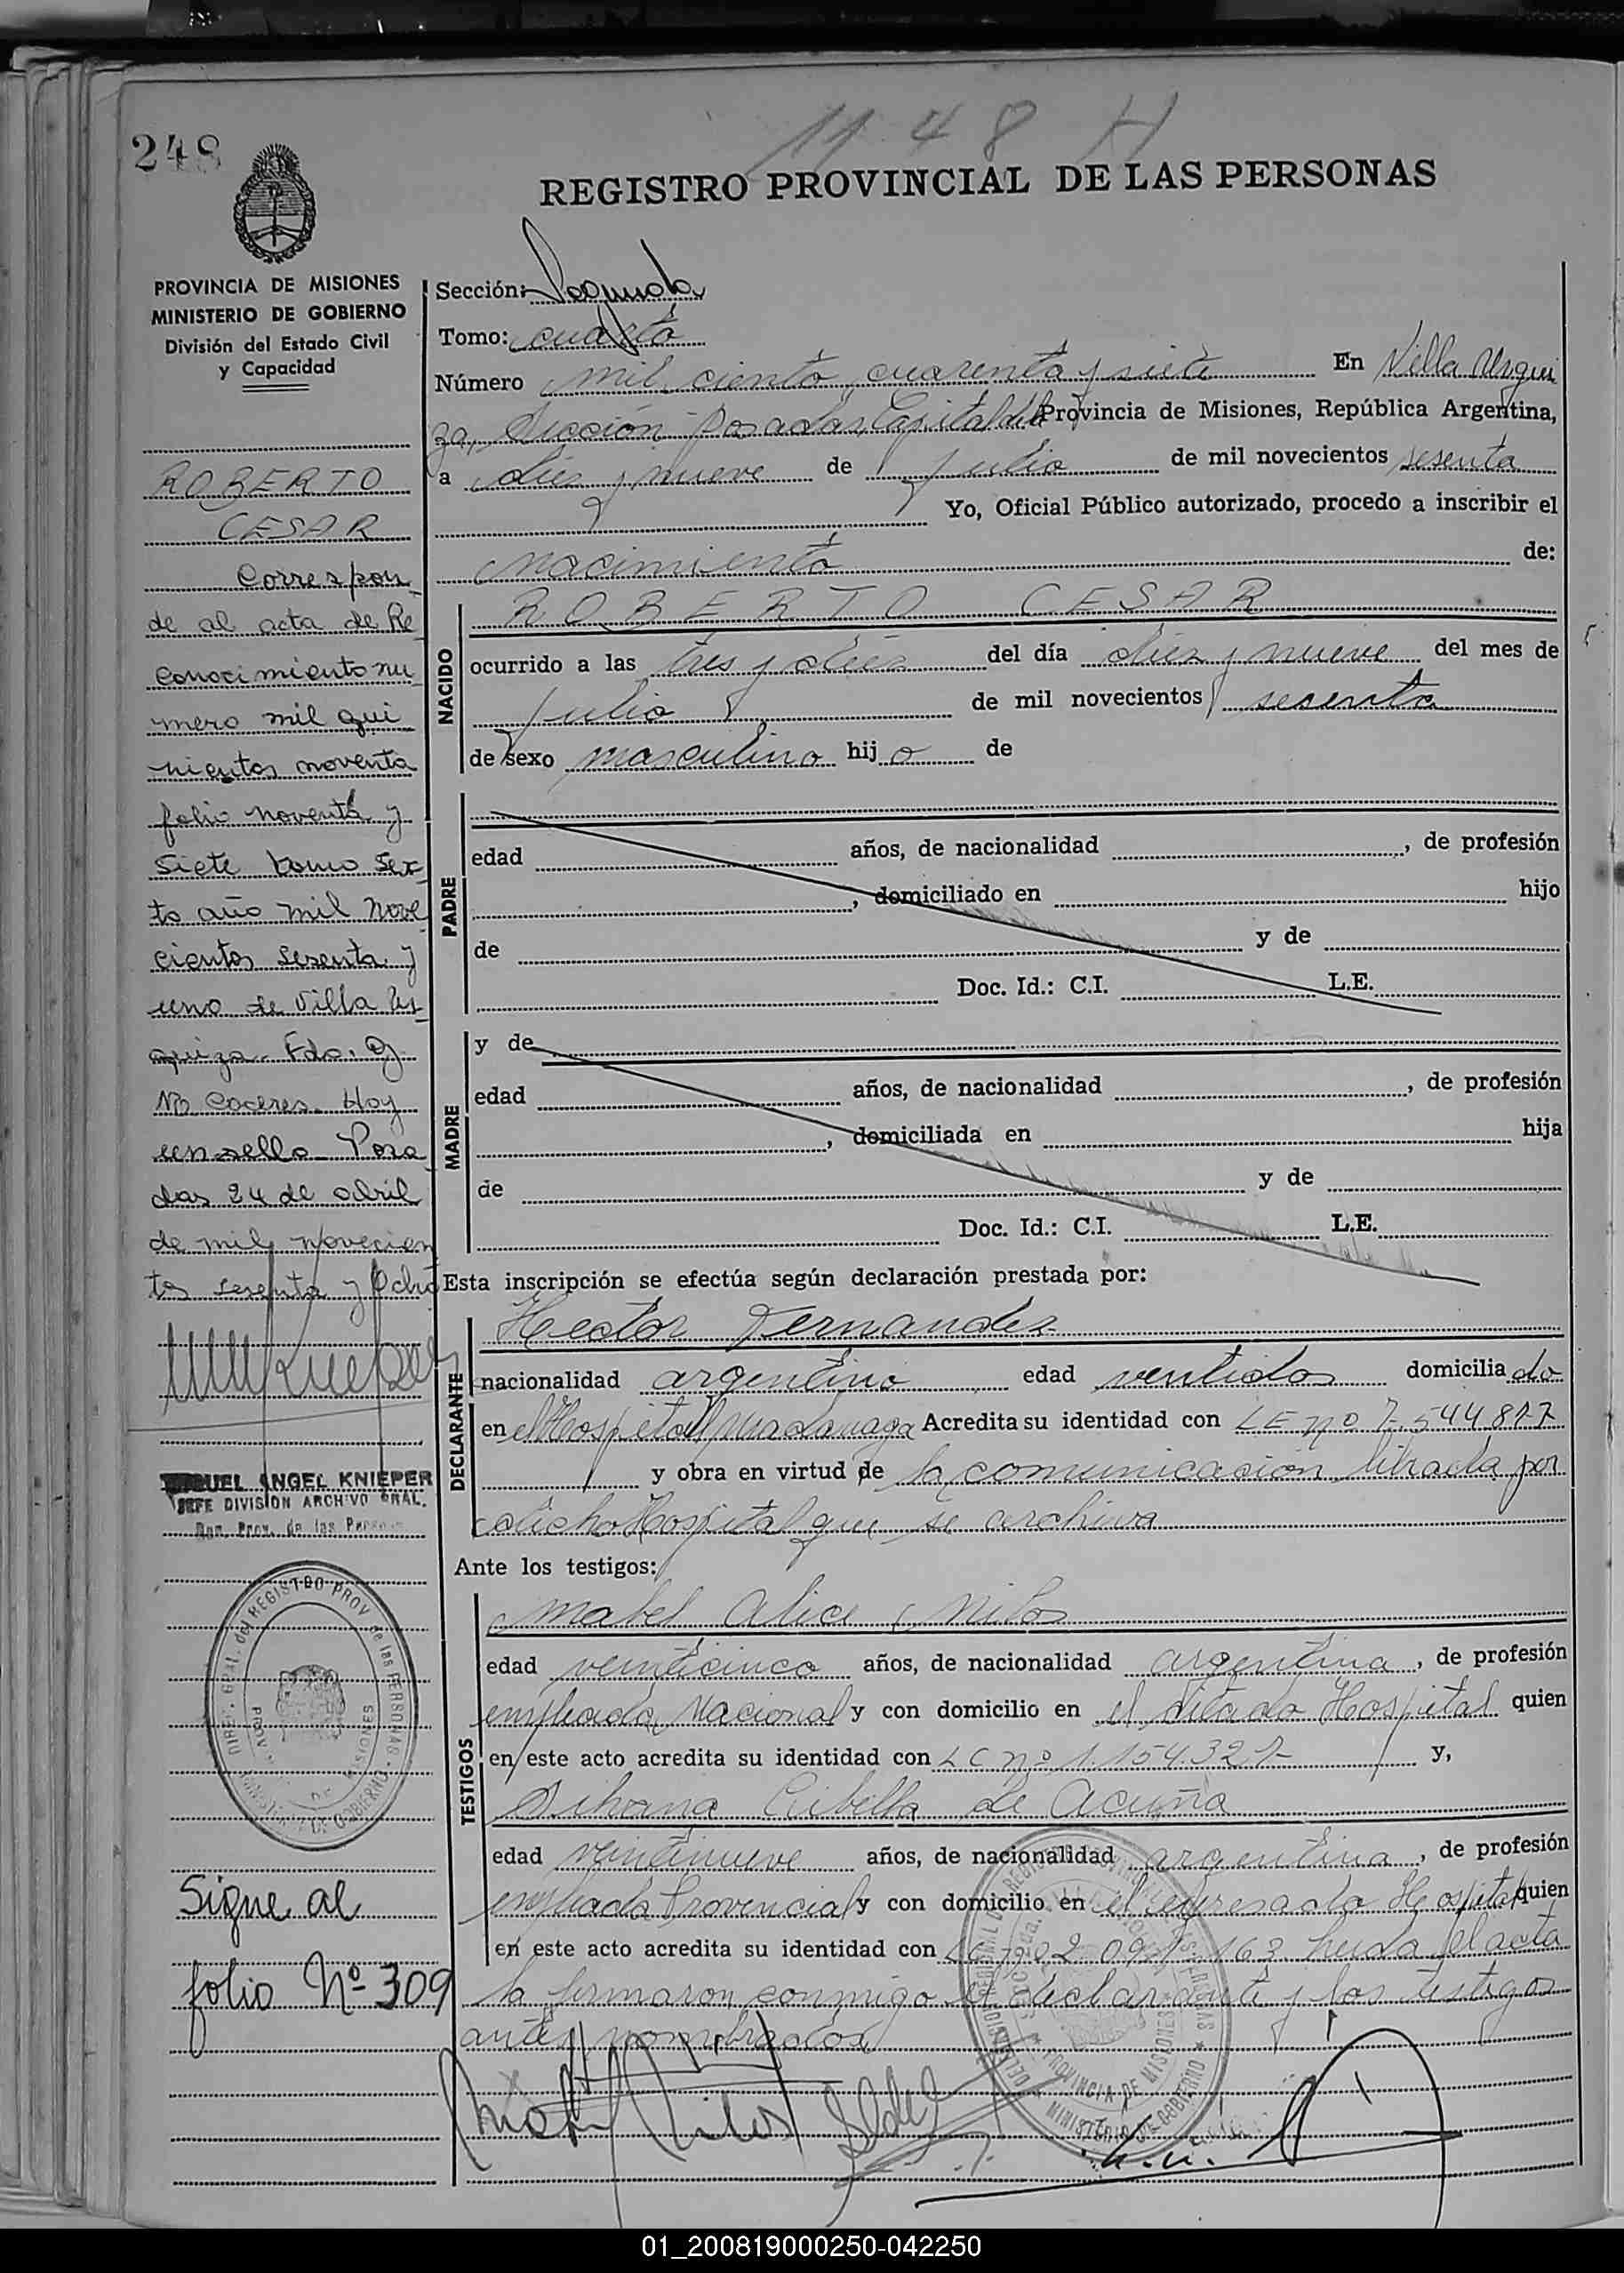 11.48 H
248
REGISTRO PROVINCIAL DE LAS PERSONAS
PROVINCIA DE MISIONES
MINISTERIO DE GOBIERNO
División del Estado Civil
y Capacidad
ROBERTO
CESAR
Correspon
de al acta de Re
conocimiento nu
mero mil qui
nientos noventa
folio noventa y
siete tomo sex-
to año mil nove
cientos sesenta y
uno de Villa Ur
quiza. Fdo.
Caceres. Hay
un sello. Posa
das 24 de abril
de mil novecien
tos sesenta y ocho
MIGUEL ANGEL KNIEPER
JEFE DIVISION ARCHIVO GRAL.
Sigue al
folio Nº 309
Sección: Segunda
Tomo: cuarto
Número mil ciento cuarenta y siete En Villa Urqui
za, Sección Posadas, Capital de la Provincia de Misiones, República Argentina,
a diez y nueve de julio de mil novecientos sesenta
Yo, Oficial Público autorizado, procedo a inscribir el
nacimiento de:
NACIDO
ROBERTO CESAR
ocurrido a las tres y diez del día diez y nueve del mes de
julio de mil novecientos sesenta
de sexo masculino hij o de
PADRE
edad años, de nacionalidad , de profesión
, domiciliado en hijo
de y de
Doc. Id.: C.I. L.E.
MADRE
y de
edad años, de nacionalidad , de profesión
, domiciliada en hija
de y de
Doc. Id.: C.I. L.E.
Esta inscripción se efectúa según declaración prestada por:
DECLARANTE
Hector Fernandez
nacionalidad argentino edad ventidos domicilia do
en el Hospital Madariaga Acredita su identidad con LE nº 7.544.817
y obra en virtud de la comunicacion librada por
dicho Hospital que se archiva
Ante los testigos:
TESTIGOS
Mabel Alice Milos
edad veinticinco años, de nacionalidad argentina, de profesión
empleada Nacional y con domicilio en el citado Hospital quien
en este acto acredita su identidad con LC nº 1.154.321- y,
Silvana Cibella de Acuña
edad veintinueve años, de nacionalidad argentina, de profesión
empleada Provincial y con domicilio en el expresado Hospital quien
en este acto acredita su identidad con LC nº 2.091.163 leida el acta
la firmaron conmigo el declarante y los testigos
antes nombrados
PROVINCIA DE MISIONES
MINISTERIO DE GOBIERNO
01_200819000250-042250